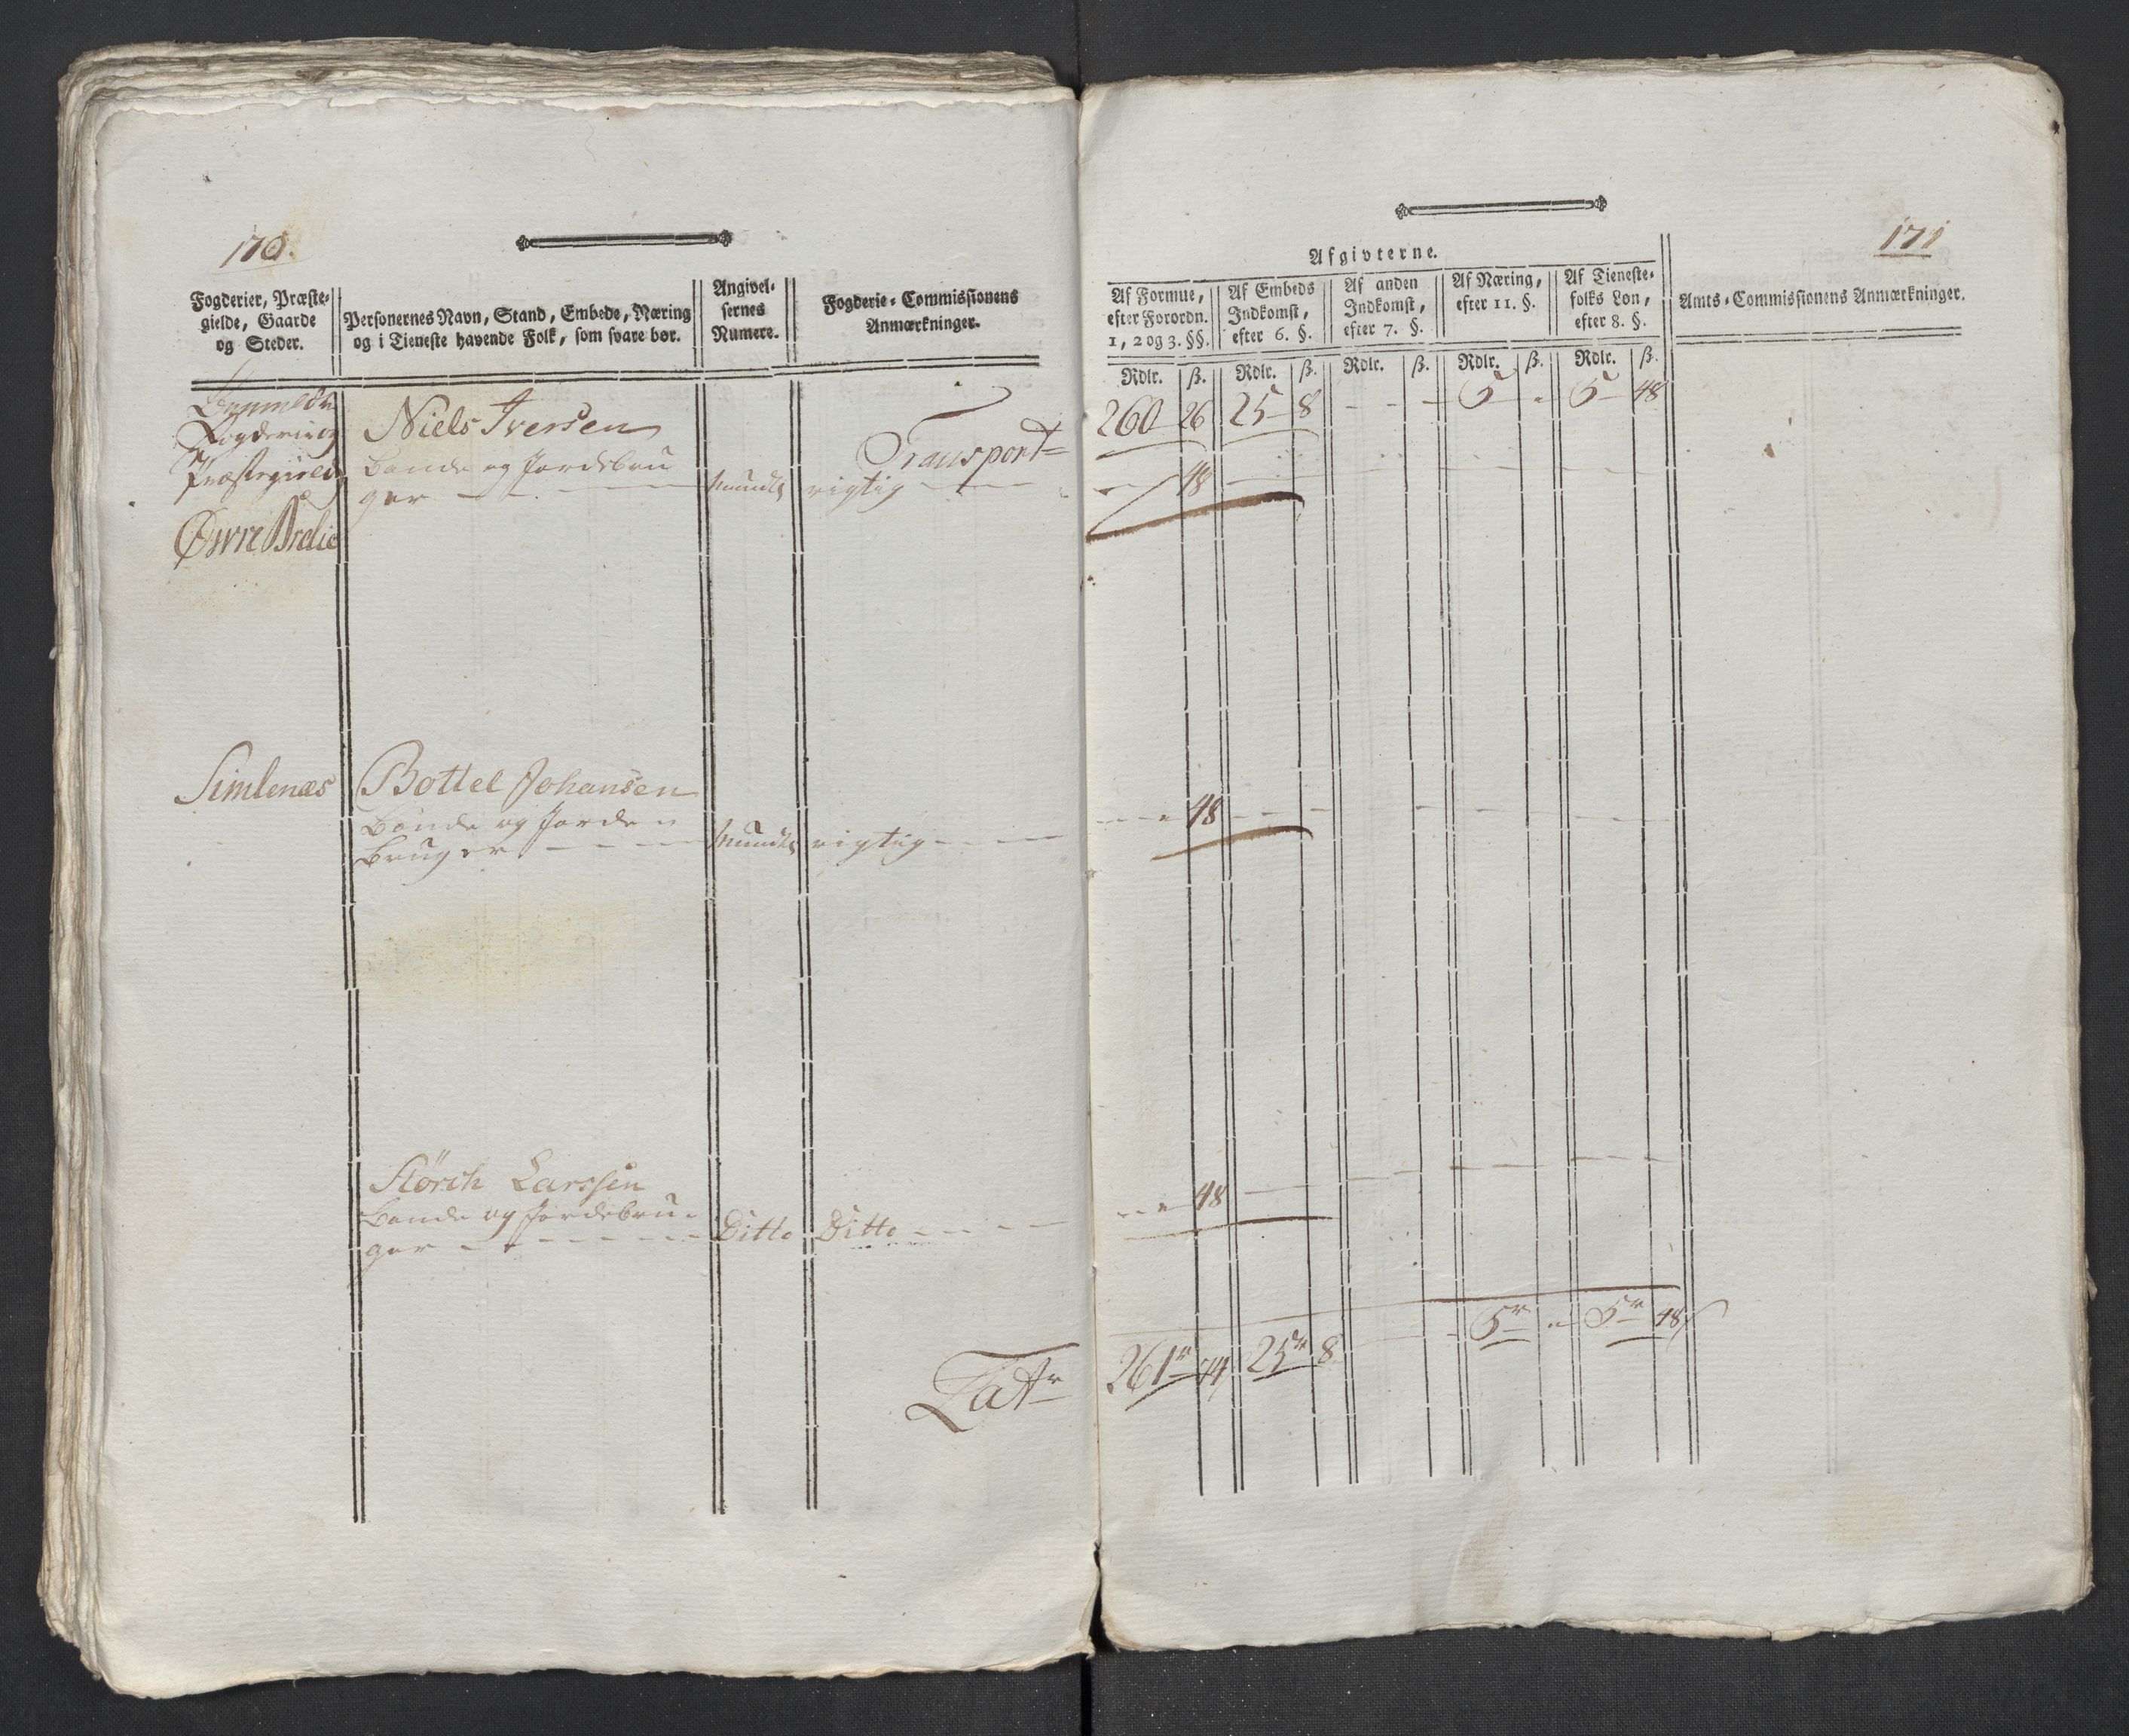 170.
Fogderier, Præste-
gielde, Gaarde
og Steder.
Personernes Navn, Stand, Embede, Næring
og i Tieneste havende Folk, som svare bør.
Angivel-
sernes
Numere.
Fogderie-Commissionens
Anmærkninger.
Fogderie og
Præstegield
Øvre Brelie
Niels Iversen
Bonde og Jordebru
ger
mundtl
rigtig
Transport
Simlenæs
Bottel Johansen
Bonde og Jorde=
bruger
mundtl
rigtig
Størch Larssen
Bonde og Jordebru=
ger
Ditto
Ditto
Latr
171
Afgivterne.
Af Formue,
efter Forordn.
1, 2 og 3. §§.
Af Embeds
Indkomst,
efter 6. §.
Af anden
Indkomst,
efter 7. §.
Af Næring,
efter 11. §.
Af Tieneste-
folks Løn,
efter 8. §.
Amts-Commissionens Anmærkninger.
Rdlr. ß. Rdlr. ß. Rdlr. ß. Rdlr. ß. Rdlr. ß.
260 26 25 8 - - 5 - 5 48
48
48
48
261r 74 25r 8 - 5r - 5r 48